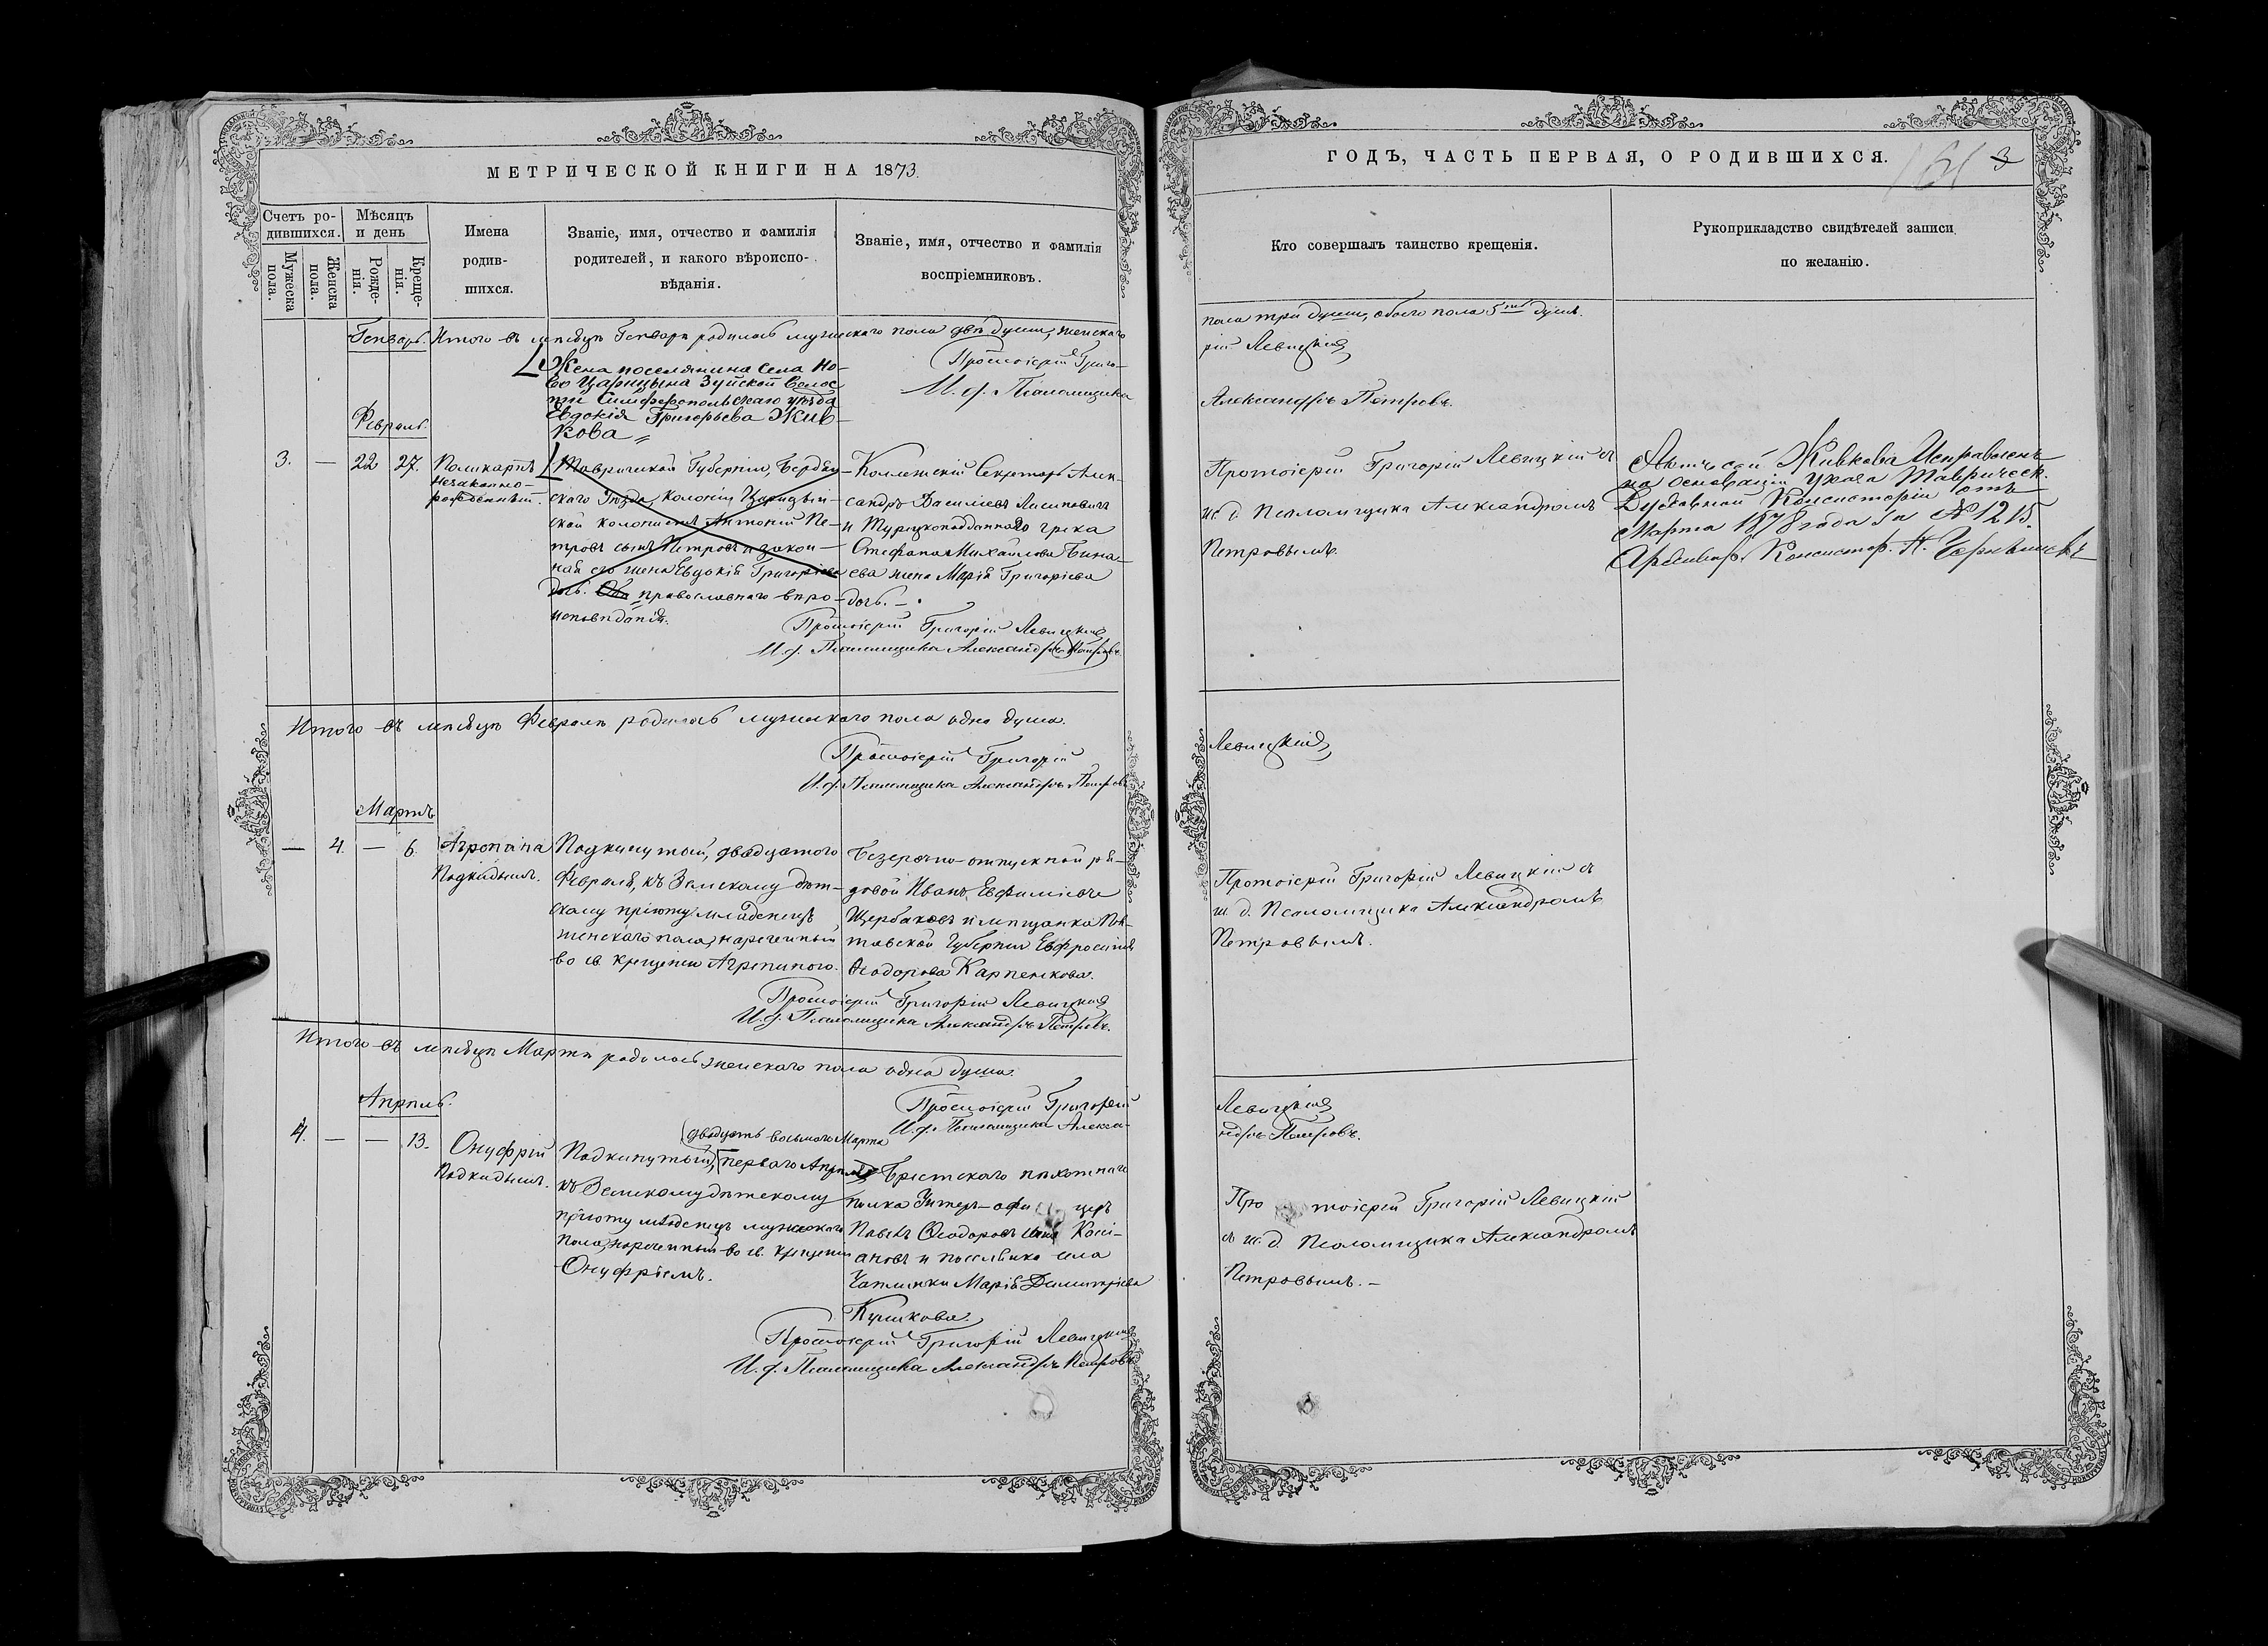 МЕТРИЧЕСКОЙ КНИГИ НА 1873.
Счетъ ро-
дившихся.
Мѣсяцъ
и день
Мужеска
пола.
Женска
пола.
Рожде-
нія.
Креще-
нія.
Имена
родив-
шихся.
Званіе, имя, отчество и фамилія
родителей, и какого вѣроиспо-
вѣданія.
Званіе, имя, отчество и фамилія
воспріемниковъ.
Генварь. Итого въ мѣсяцѣ Генварѣ родилось мужескаго пола двѣ души, женскаго
Протоіерей Григо-
И. д. Псаломщика
Жена поселянина села Но-
во Царицына Зуйской волос
ти Симферопольскаго уѣзда
Евдокія Григорьева Жив-
кова
Февраль.
3. — 22 27. Поликарпъ
незаконно-
рожденный.
Таврической Губерніи, Бердян-
скаго Уѣзда, колоніи Царицын-
ской колонистъ Антоній Пе-
тровъ сынъ Петровъ и закон-
ная его жена Евдокія Григоріева
дочь. Оба православнаго вѣро-
исповѣданія.
Коллежскій Секретарь Алек-
сандръ Василіевъ
и Турецкоподданнаго грека
Стефана Михайлова Бина-
ева жена Марія Григоріева
дочь. —
Протоіерей Григорій Левицкій
И. д. Псаломщика Александръ Петровъ.
Итого въ мѣсяцѣ Февралѣ родилось мужескаго пола одна душа.
Протоіерей Григорій
И. д. Псаломщика Александръ Петровъ
Мартъ
— 4. — 6. Агрипина
Подкидышъ.
Подкинутый, двадцатаго
Февраля, къ Земскому дѣт-
скому пріюту младенецъ
женскаго пола, нареченный
во св. крещеніи Агрипиною.
Безсрочно-отпускной ря-
довой Иванъ Евфиміевъ
Щербаковъ и мѣщанка Пол-
тавской Губерніи Евфросинія
Ѳеодорова Карпенкова.
Протоіерей Григорій Левицкій
И. д. Псаломщика Александръ Петровъ.
Итого въ мѣсяцѣ Мартѣ родилось женскаго пола одна душа.
Протоіерей Григорій
И. д. Псаломщика Алекса-
Апрѣль.
4. — — 13. Онуфрій
Подкидышъ.
двадцать восьмого Марта
Подкинутый, перваго Апрѣля
къ Земскому дѣтскому
пріюту младенецъ мужескаго
пола, нареченный во св. крещеніи
Онуфріемъ.
Брестскаго пѣхотнаго
полка Унтеръ-офи церъ
Павелъ Ѳеодоровъ сынъ Касі-
ановъ и поселянка села
Марія Димитріева
Куликова.
Протоіерей Григорій Левицкій
И. д. Псаломщика Александръ Петровъ
ГОДЪ, ЧАСТЬ ПЕРВАЯ, О РОДИВШИХСЯ.
161 3
Кто совершалъ таинство крещенія.
Рукоприкладство свидѣтелей записи
по желанію.
пола три души, обоего пола 5ть душъ.
рій Левицкій
Александръ Петровъ.
Протоіерей Григорій Левицкій съ
и. д. Псаломщика Александромъ
Петровымъ.
Живкова Исправленъ
на основаніи Указа Таврическ.
Духовной Консисторіи отъ
Марта 1878 года за № 1215.
Архиваріусъ Консистор. Н.
Левицкій
Протоіерей Григорій Левицкій съ
и. д. Псаломщика Александромъ
Петровымъ.
Левицкій
ндръ Петровъ.
Про тоіерей Григорій Левицкій
съ и. д. Псаломщика Александромъ
Петровымъ. —